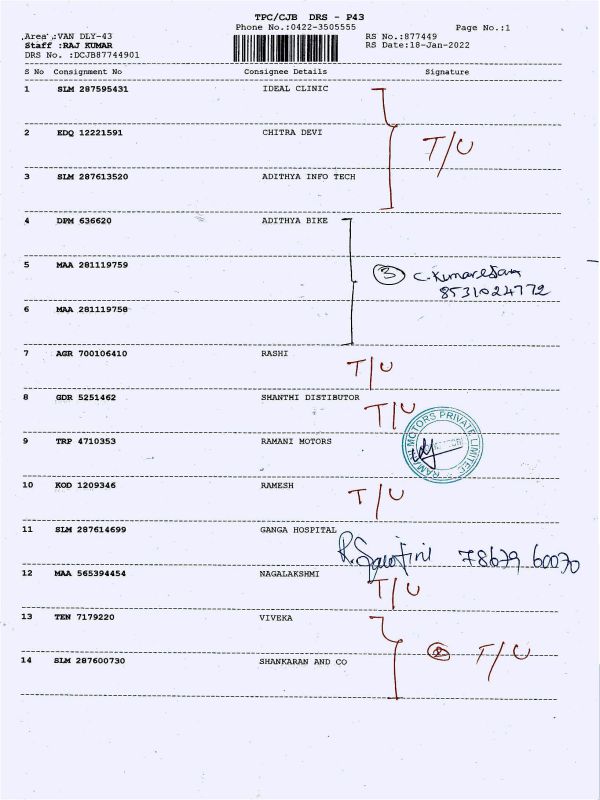 TPC/CJB DRS - P43
Phone No.:0422-3505555 Page No.:1
Area :VAN DLY-43 RS No.:877449
Staff :RAJ KUMAR RS Date:18-Jan-2022
DRS No. :DCJB87744901
S No Consignment No Consignee Details Signature
1 SLM 287595431 IDEAL CLINIC
2 EDQ 12221591 CHITRA DEVI T/U
3 SLM 287613520 ADITHYA INFO TECH
4 DPM 636620 ADITHYA BIKE
5 MAA 281119759 3 C. Kumaresan
8531024772
6 MAA 281119758
7 AGR 700106410 RASHI T/U
8 GDR 5251462 SHANTHI DISTIBUTOR T/U
9 TRP 4710353 RAMANI MOTORS
RAMANI MOTORS PRIVATE LIMITED
10 KOD 1209346 RAMESH T/U
11 SLM 287614699 GANGA HOSPITAL
R. 78679 60070
12 MAA 565394454 NAGALAKSHMI T/U
13 TEN 7179220 VIVEKA
2 T/U
14 SLM 287600730 SHANKARAN AND CO